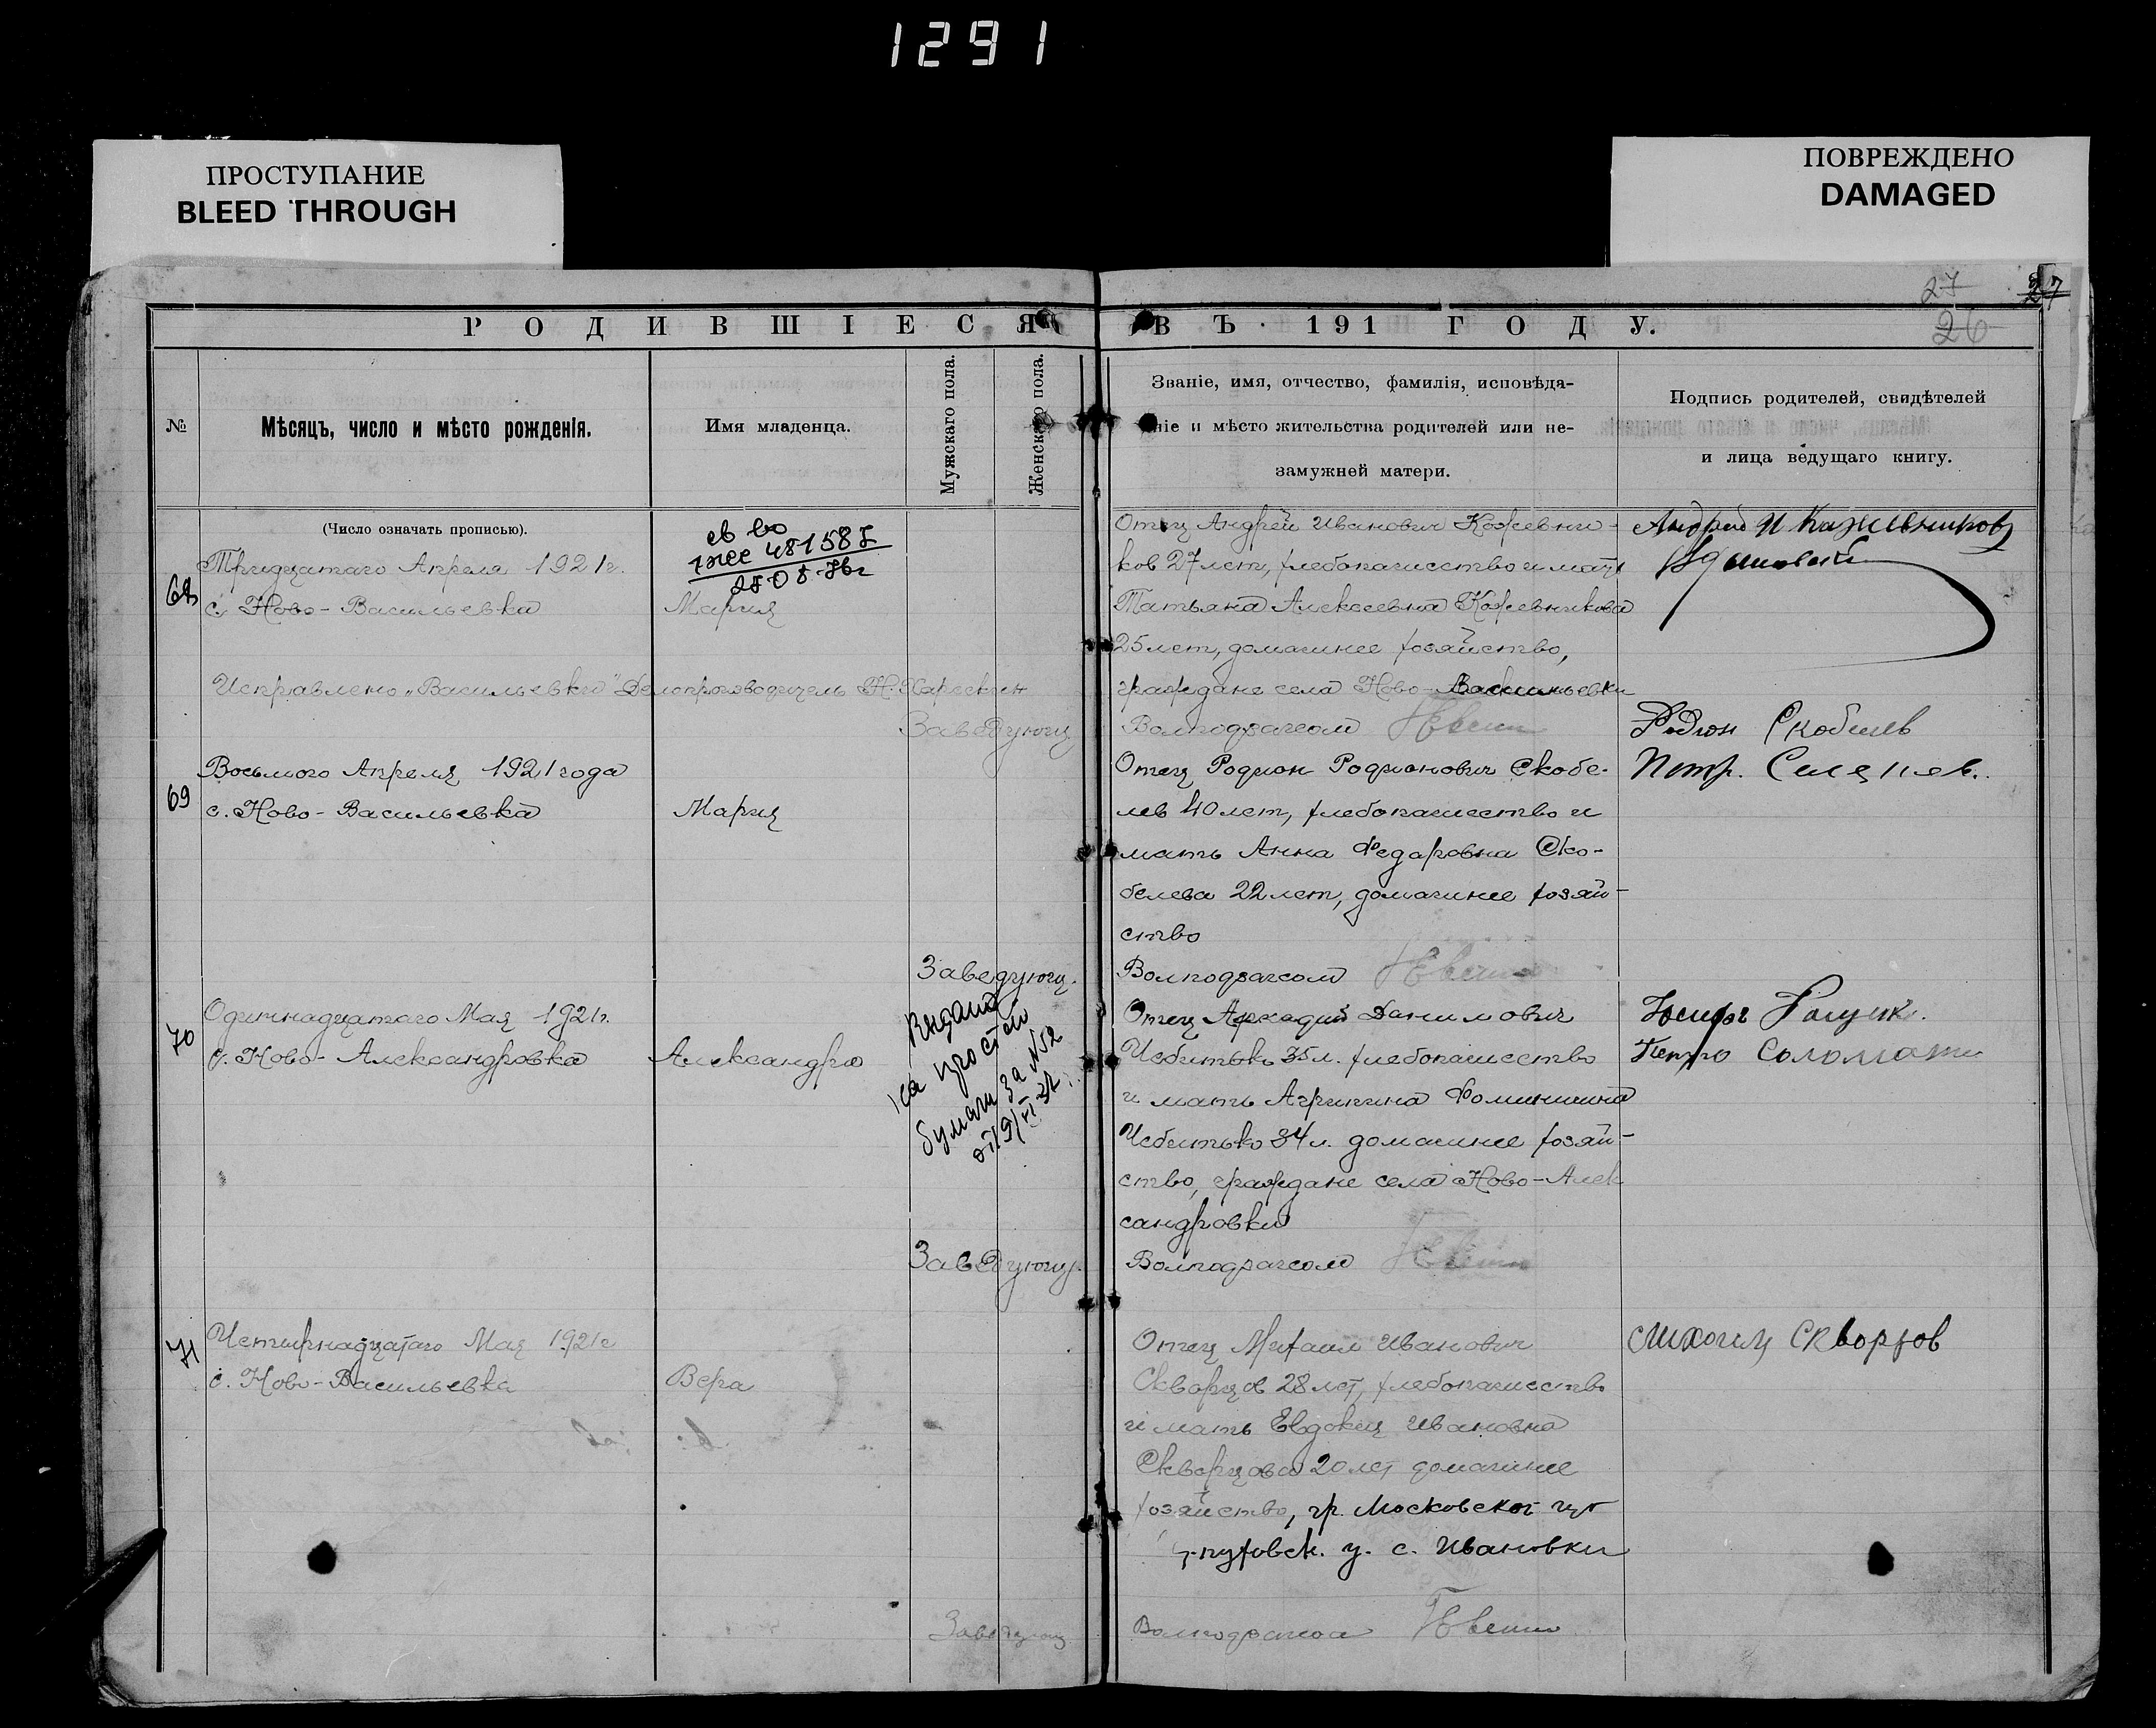 1291
ПРОСТУПАНИЕ
BLEED THROUGH
ПОВРЕЖДЕНО
DAMAGED
27
27
26
РОДИВШІЕСЯ ВЪ 191 ГОДУ.
№
Мѣсяцъ, число и мѣсто рожденія.
Имя младенца.
Мужскаго пола.
Женскаго пола.
Званіе, имя, отчество, фамилія, исповѣда-
ніе и мѣсто жительства родителей или не-
замужней матери.
Подпись родителей, свидѣтелей
и лица ведущаго книгу.
(Число означать прописью).
68
Тридцатаго Апреля 1921г.
с. Ново-Васильевка
св во
481587
Мария
Исправлено „Васильевки" Делопроизводитель Н.
Заведующ
Отец Андрей Иванович Кожевни-
ков 27 лет, хлебопашество и мать
Татьяна Алексеевна Кожевникова
25 лет, домашнее хозяйство,
граждане села Ново-Васильевки
Волподзагсом
Андрей И Кажевников
69
Восьмого Апреля 1921 года
с. Ново-Васильевка
Мария
Заведующ.
Отец Родион Родионович Скобе-
лев 40 лет, хлебопашество и
мать Анна Федаровна Ско-
белева 22 лет, домашнее хозяй-
ство
Волподзагсом
Родион Скобелев
Петр.
70
Одиннадцатаго Мая 1921г.
с. Ново-Александровка
Александра
Выдана
на простой
бумаги за №52
от 19/VI 31
Заведующ.
Отец Аркадий Данилович
Чебитько 35 л. хлебопашество
и мать Агрипина Фоминишна
Чебитько 34 л. домашнее хозяй-
ство, граждане села Ново-Алек
сандровки
Волподзагсом
71
Четырнадцатаго Мая 1921г
с. Ново-Васильевка
Вера
Заведующ
Отец Михаил Иванович
Скворцов 28 лет, хлебопашество
и мать Евдокия Ивановна
Скворцова 20 лет домашнее
хозяйство, гр. Московской губ
у. с. Ивановки
Скворцов